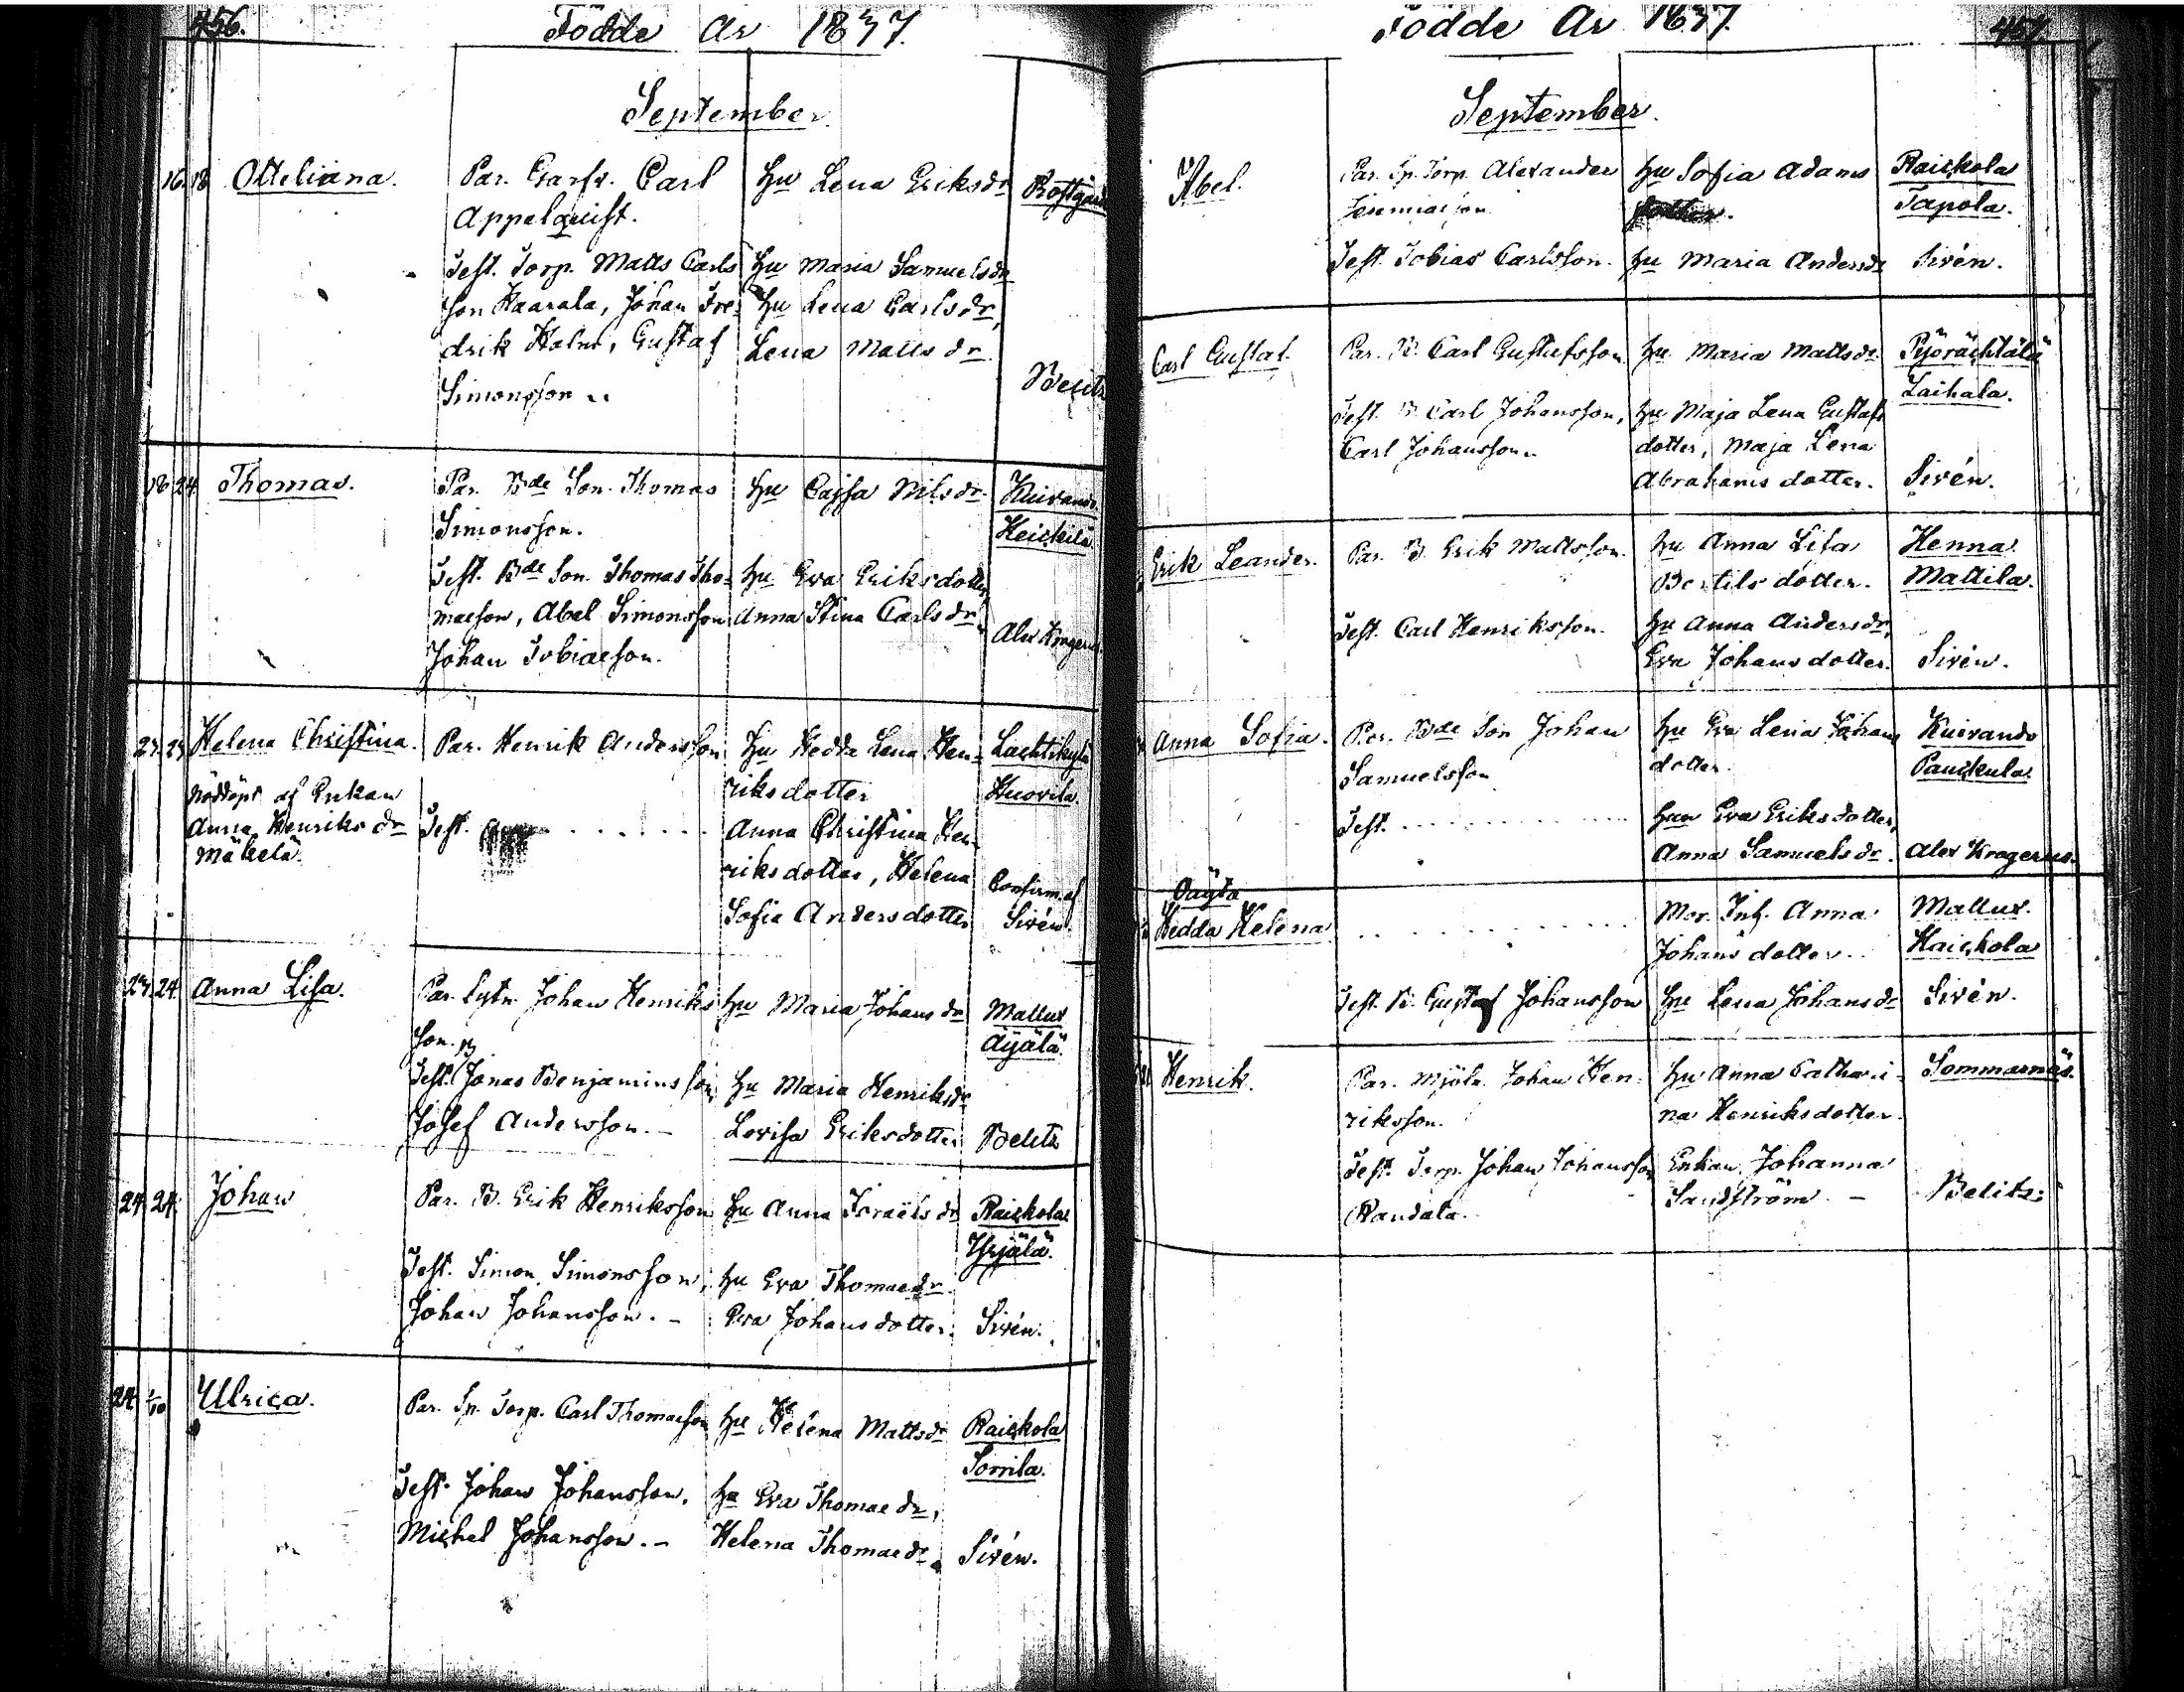 456.
Födde År 1837.
September.
16. 18. Otteliana.
Par. Garfv. Carl
Appelquist.
Hu Lena Eriksdr
Test. Torp. Matts Carls
son Kaarala, Johan Fre-
drik Holm, Gustaf
Simonsson
Hu Maria Samuelsdr
Hu Lena Carlsdr,
Lena Mattsdr
Belitz
18 24. Thomas.
Par. Bde Son. Thomas
Simonsson.
Hu Cajsa Nilsdr.
Kuivando.
Heickilä
Test. Bde Son. Thomas Tho-
maeson, Abel Simonsson
Johan Tobiaeson.
Hu Eva Eriksdotter,
Anna Stina Carlsdr
Alex Krogerus.
23. 23 Helena Christina.
nöddöpt af Enkan
Anna Henriksdr
Mäkelä.
Par. Henrik Andersson
Hu Hedda Lena Hen-
riksdotter
Lachtikylä
Huovila.
Test.
Anna Christina Hen-
riksdotter, Helena
Sofia Andersdotter
Confirm. af
Sirén.
23. 24. Anna Lisa.
Par. Johan Henriks
son.
Hu Maria Johansdr
Mallux
Äijälä.
Test. B Jonas Benjaminsson,
Josef Andersson. -
Hu Maria Henriksdr
Lovisa Eriksdotter
Belitz
24. 24. Johan
Par. B. Erik Henriksson
Hu Anna Israelsdr
Raickola
Yrjälä.
Test. Simon Simonsson,
Johan Johansson. -
Hu Eva Thomaedr
Eva Johansdotter.
Sirén.
24. 1/10 Ulrica.
Par. Sp. Torp. Carl Thomaeson
Hu Helena Mattsdr
Raickola
Sorrila.
Test. Johan Johansson,
Michel Johansson. -
Hu Eva Thomaedr,
Helena Thomaedr.
Sirén.
Födde År 1837.
457.
September.
Abel.
Par. Sp. Torp. Alexander
Jeremiaeson
Hu Sofia Adams
dotter.
Raickola
Tapola.
Test. Tobias Carlsson.
Hu Maria Andersdr
Sirén.
Carl Gustaf.
Par. B. Carl Gustafsson
Hu Maria Mattsdr
Pyörächtälä
Laihala.
Test. B. Carl Johansson,
Carl Johansson.
Hu Maja Lena Gustafs
dotter, Maja Lena
Abrahams dotter.
Sirén.
Erik Leander.
Par. B. Erik Mattsson.
Hu Anna Lisa
Bertils dotter.
Henna.
Mattila.
Test. Carl Henriksson.
Hu Anna Andersdr,
Eva Johansdotter.
Sirén.
Anna Sofia.
Par. Bde Son Johan
Samuelsson
Hu Eva Lena Johans
dotter.
Kuivando
Pauckula.
Test.
Hun Eva Eriksdotter,
Anna Samuelsdr.
Alex Krogerus.
Oägta
Hedda Helena
Mor. Inh. Anna
Johans dotter.
Mallux.
Haickola
Test. B. Gustaf Johansson
Hu Lena Johansdr
Sirén.
Henrik.
Par. Mjöln. Johan Hen-
riksson.
Hu Anna Cathari-
na Henriksdotter.
Sommarnäs.
Test. Torp. Johan Johansson
Randala.
Enkan Johanna
Sandström. -
Belitz.